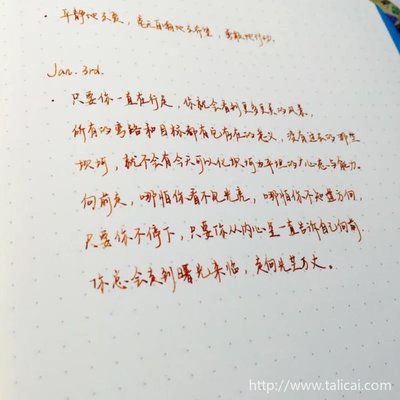 · 平静地去爱,毫无盲目地去希望,勇敢地行动.
Jan. 3rd.
· 只要你一直在行走,你就会看到更多更美的风景,
所有的离路和目标都有它存在的意义,没有过去的那些
坎坷,就不会有今天可以化坎坷为平坦的心态与能力.
向前走,哪怕你看不见光亮,哪怕你不知道方向,
只要你不停下,只要你从内心里一直告诉自己向前.
你总会走到曙光来临,走向光芒万丈。
http://www.talicai.com